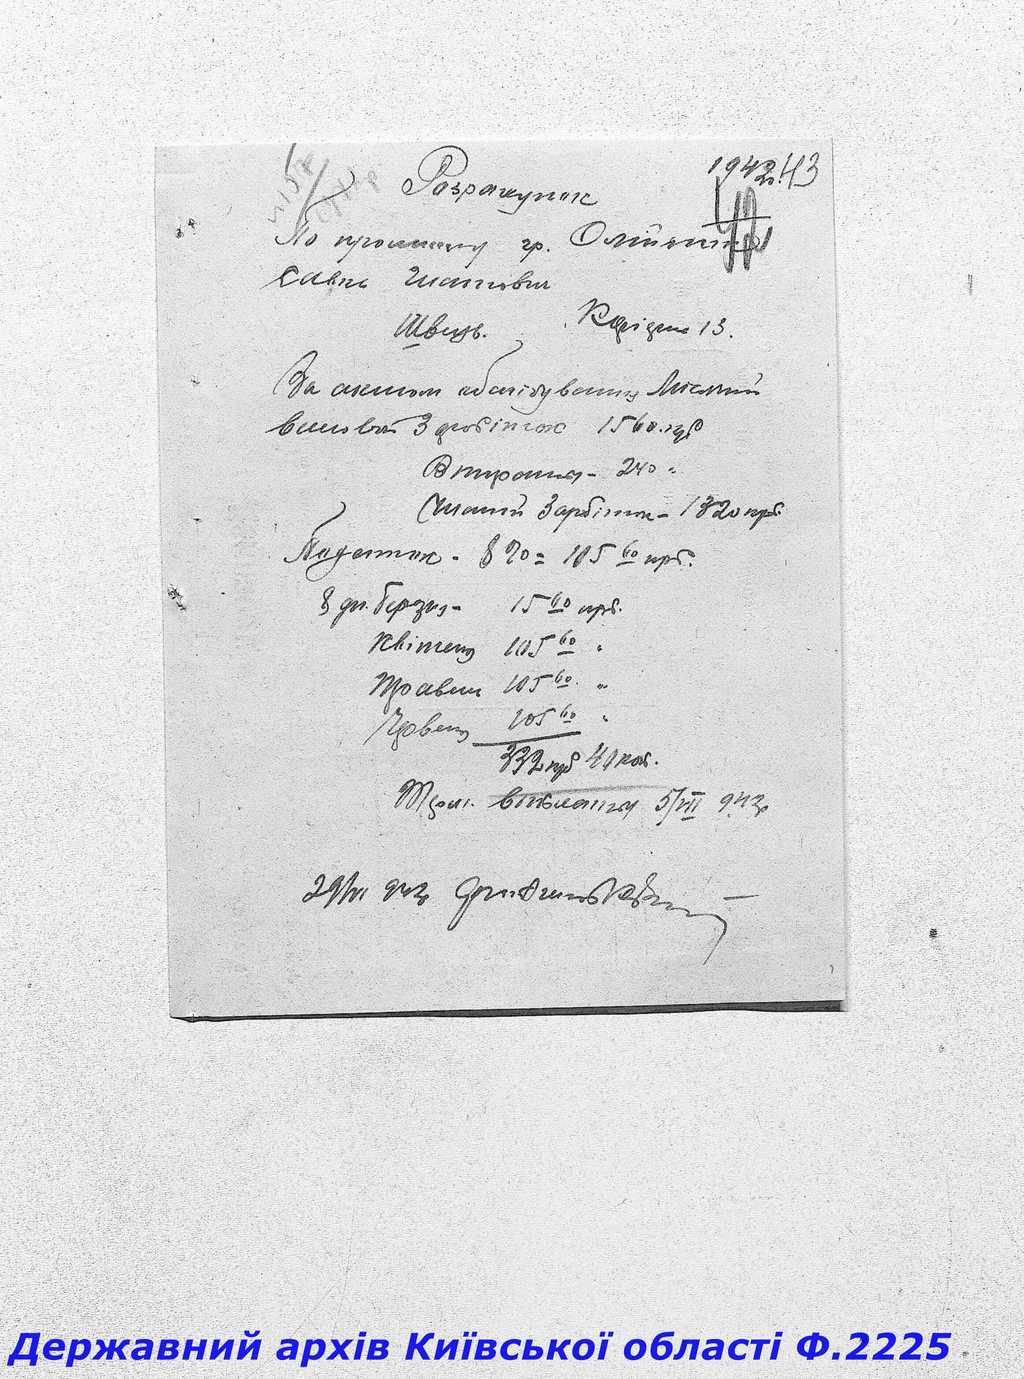 1942р. 43
Розрахунок
По промислу гр. Олійник
Савка
Швець. 13.
За актом обслідування Місячний
валовий Заробіток 1560 крб
Втрати - 240 "
Чистий Заробіток - 1320 крб.
Податок - 8% = 105 60 крб.
дн. Березня - 15 60 крб.
Квітень 105 60 "
Травень 105 60 "
Червень 105 60 "
332 крб 40 коп.
5/VII 942р
29/VI 942р
Державний архів Київської області Ф.2225